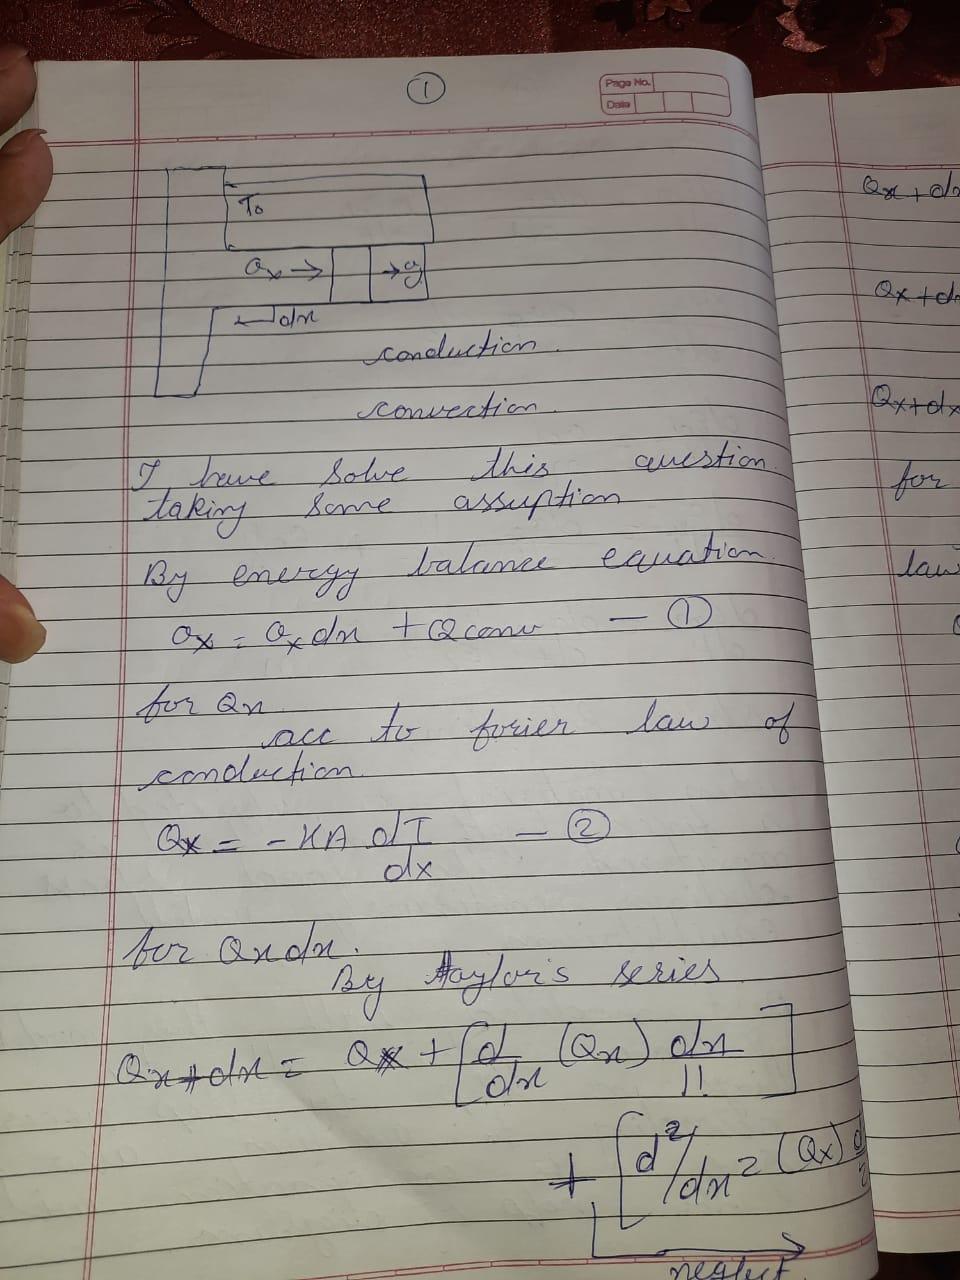 1
Page No.
Date
To
Qx → → q
dx
conduction
convection
I have solve this question
taking some assuption
By energy balance equation
Qx = Qx dx + Qconv — 1
for Qx
acc to forier law of
conduction
Qx = - KA dT/dx — 2
for Qx dx.
By Taylor's series
Qx+dx = Qx + [d/dx (Qx) dx/1!]
+ [d²/dx² (Qx)
neglect
Qx+dx
Qx+dx
Qx+dx
for
law